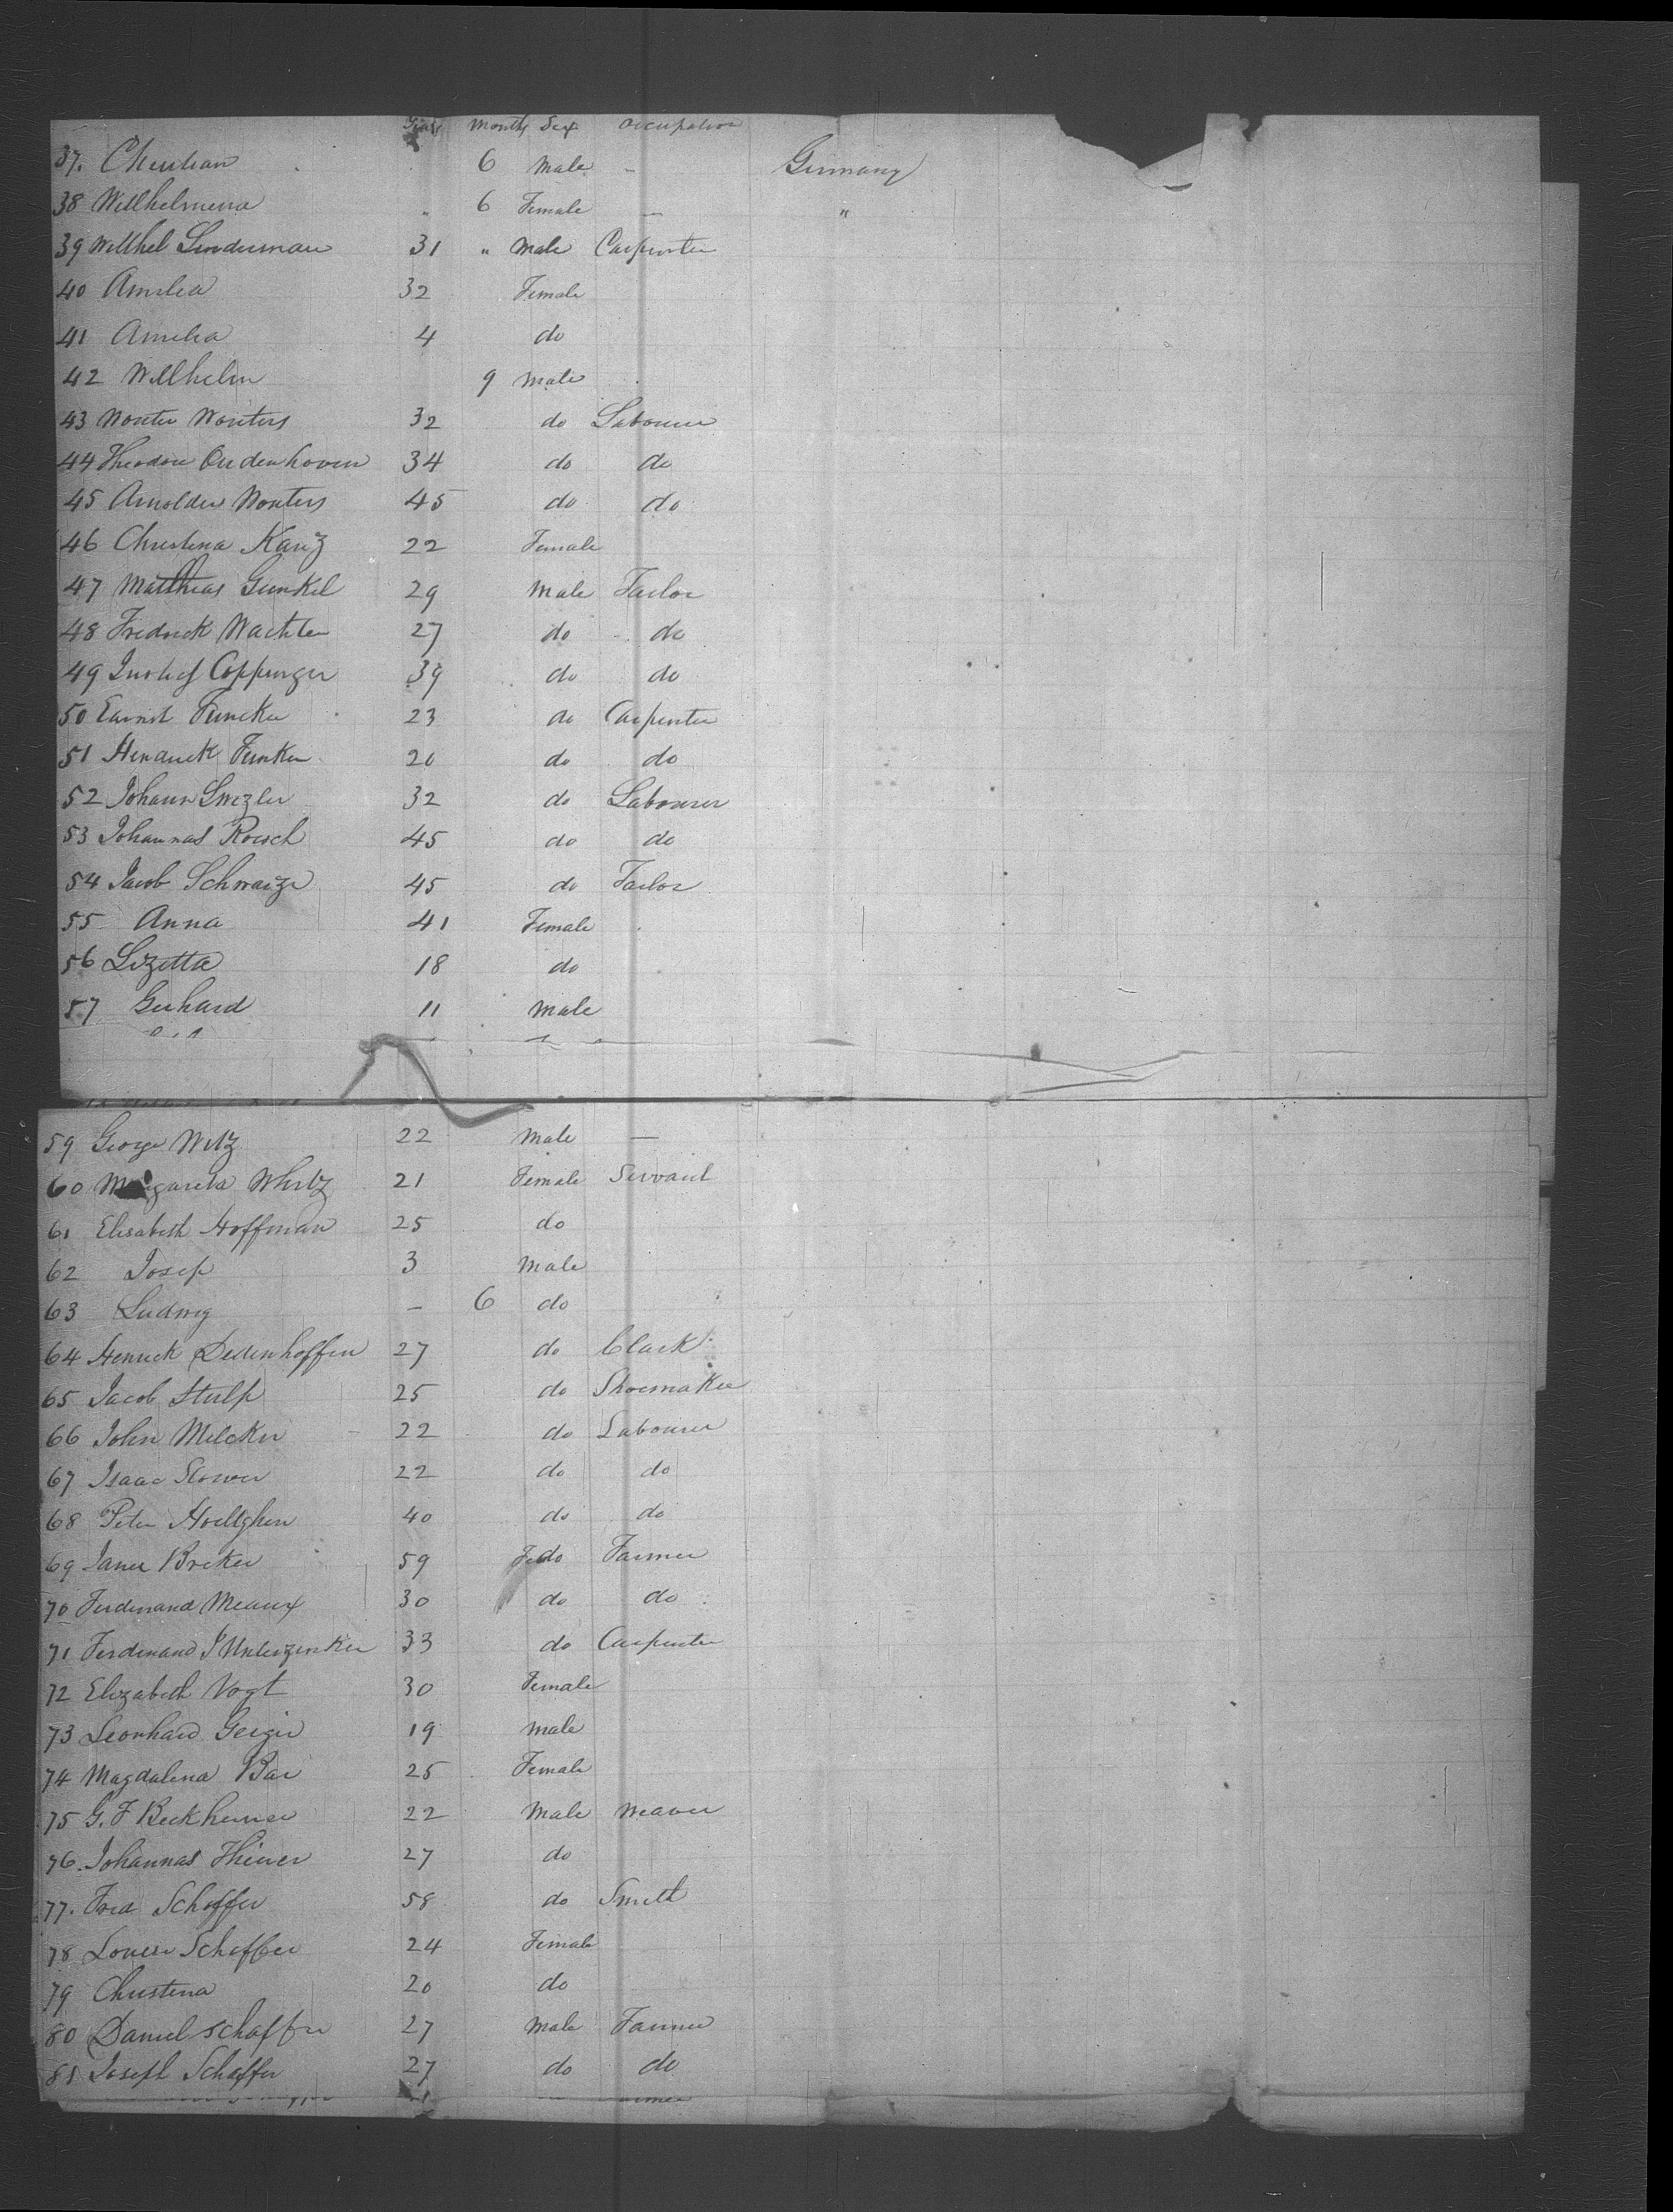 Years Months Sex Occupation
37. Christian 6 Male - Germany
38 Willhelmena " 6 Female — "
39 Willhel Linderman 31 " Male Carpenter
40 Amelea 32 Female
41 Amelia 4 do
42 Willhelm 9 Male
43 Wouter Wouters 32 do Labourer
44 Theodore Oudenhoven 34 do do
45 Arnoldus Wouters 45 do do
46 Christena Kanz 22 Female
47 Matthias Gunkel 29 Male Tailor
48 Fredrick Wachter 27 do do
49 Coppenger 39 do do
50 Earnst Funcke 23 do Carpenter
51 Hendrick Funke 20 do do
52 Johann 32 do Labourer
53 Johannas Roesch 45 do do
54 Jacob Schwaize 45 do Tailor
55 Anna 41 Female
56 Lizetta 18 do
57 Gerhard 11 Male
59 George Witz 22 Male —
60 Margareta Whitz 21 Female Servant
61 Elisabeth Hoffman 25 do
62 Josep 3 Male
63 Ludwig - 6 do
64 Henrick Dellenhoffen 27 do Clark
65 Jacob Stulp 25 do Shoemaker
66 John Melcker 22 do Labourer
67 Isaac Stower 22 do do
68 Peter Hoeltghen 40 do do
69 Breker 59 do Farmer
70 Ferdinand Meaux 30 do do
71 Ferdinand J Unterzenker 33 do Carpenter
72 Elizabeth Vogt 30 Female
73 Leonhard Geiger 19 Male
74 Magdalena Bar 25 Female
75 G. F Beckheuser 22 Male Weaver
76. Johannas 27 do
77. Fred Scheffer 58 do Smith
78 Louise Scheffer 24 Female
79 Christena 20 do
80 Daniel Schaffer 27 Male Farmer
81 Joseph Schaffer 27 do do